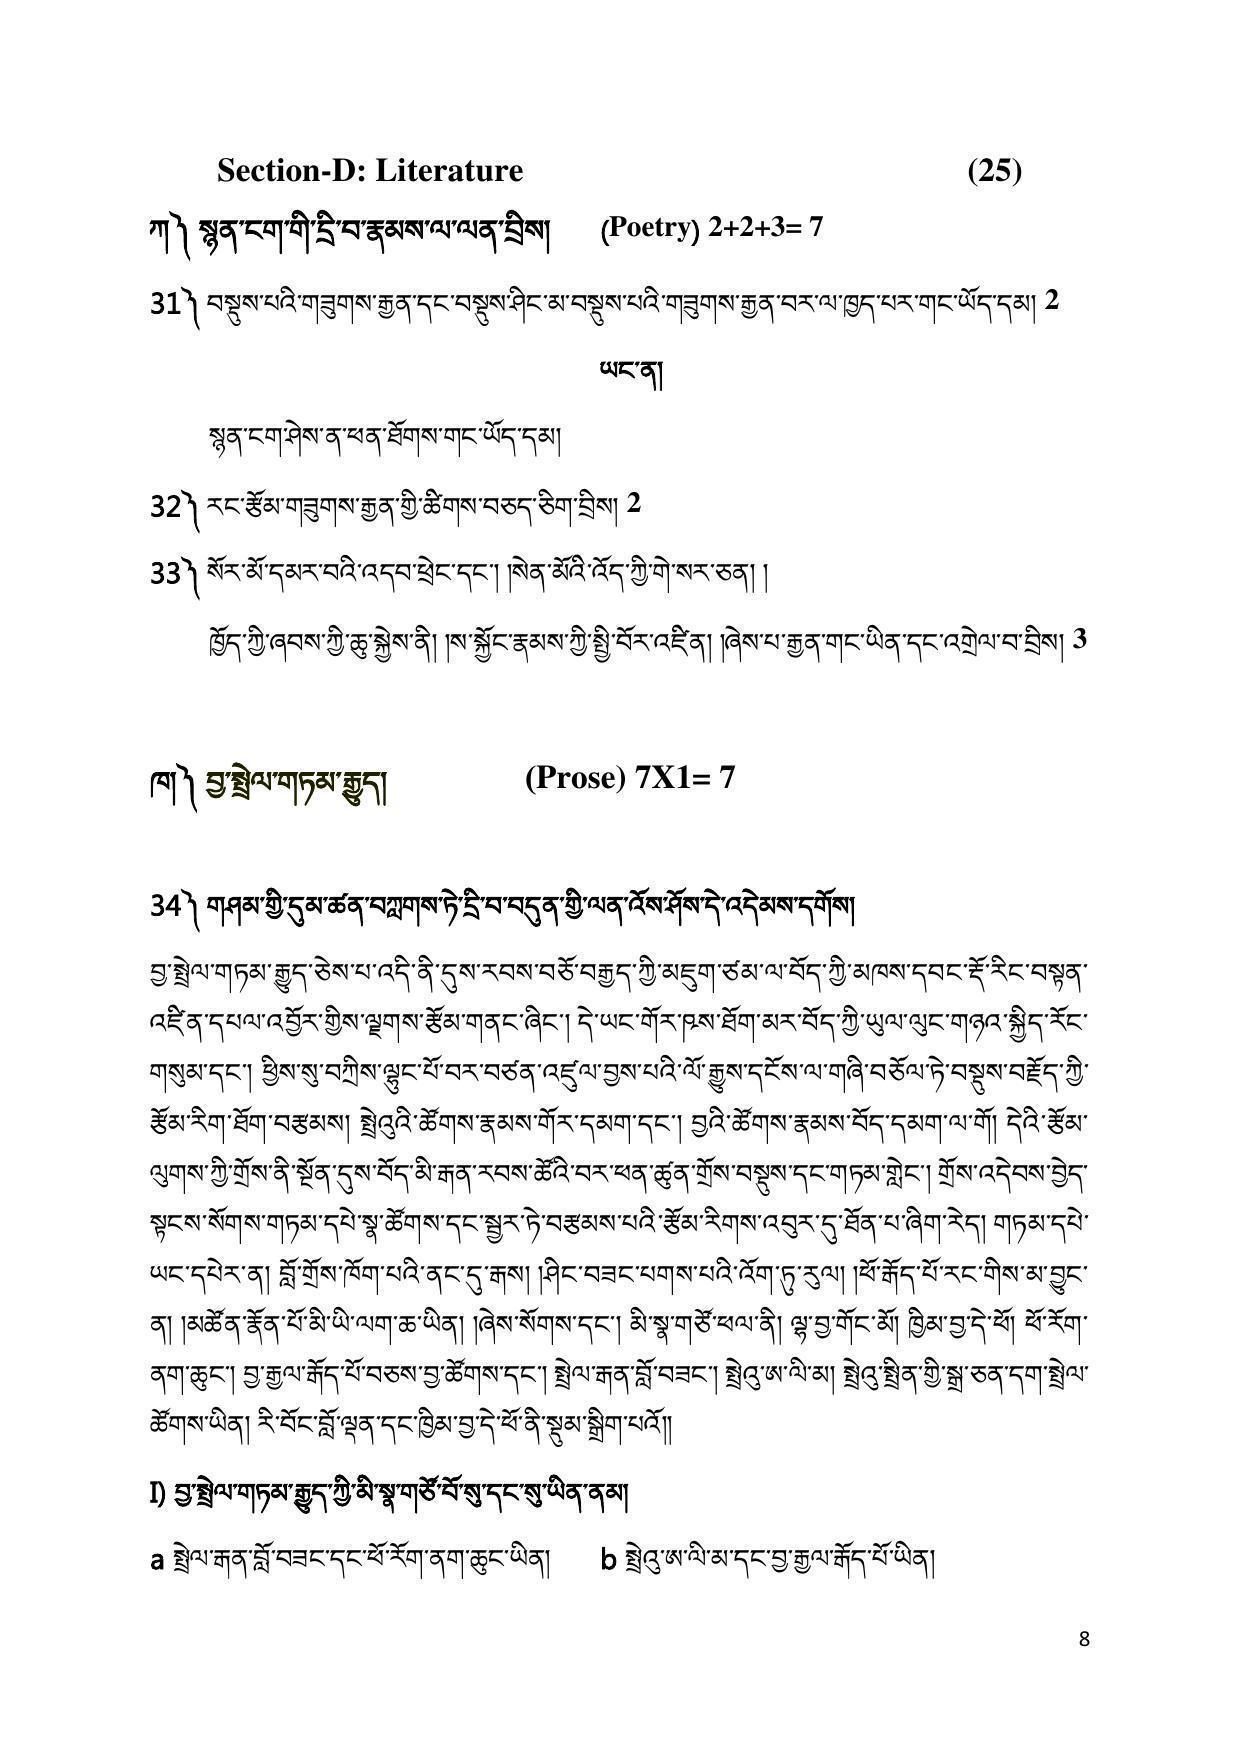 Section-D: Literature (25)
ཀ༽ སྙན་ངག་གི་དྲི་བ་རྣམས་ལ་ལན་བྲིས། (Poetry) 2+2+3= 7
31༽ བསྡུས་པའི་གཟུགས་རྒྱན་དང་བསྡུས་ཤིང་མ་བསྡུས་པའི་གཟུགས་རྒྱན་བར་ལ་ཁྱད་པར་གང་ཡོད་དམ། 2
ཡང་ན།
སྙན་ངག་ཤེས་ན་ཕན་ཐོགས་གང་ཡོད་དམ།
32༽ རང་རྩོམ་གཟུགས་རྒྱན་གྱི་ཚིགས་བཅད་ཅིག་བྲིས། 2
33༽ སོར་མོ་དམར་བའི་འདབ་ཕྲེང་དང་། །སེན་མོའི་འོད་ཀྱི་གེ་སར་ཅན། །
ཁྱོད་ཀྱི་ཞབས་ཀྱི་ཆུ་སྐྱེས་ནི། །ས་སྐྱོང་རྣམས་ཀྱི་སྤྱི་བོར་འཛིན། །ཞེས་པ་རྒྱན་གང་ཡིན་དང་འགྲེལ་བ་བྲིས། 3
ཁ༽ བྱ་སྤྲེལ་གཏམ་རྒྱུད། (Prose) 7X1= 7
34༽ གཤམ་གྱི་དུམ་ཚན་བཀླགས་ཏེ་དྲི་བ་བདུན་གྱི་ལན་འོས་ཤོས་དེ་འདེམས་དགོས།
བྱ་སྤྲེལ་གཏམ་རྒྱུད་ཅེས་པ་འདི་ནི་དུས་རབས་བཅོ་བརྒྱད་ཀྱི་མཇུག་ཙམ་ལ་བོད་ཀྱི་མཁས་དབང་རྡོ་རིང་བསྟན་
འཛིན་དཔལ་འབྱོར་གྱིས་ལྗགས་རྩོམ་གནང་ཞིང་། དེ་ཡང་གོར་ཁས་ཐོག་མར་བོད་ཀྱི་ཡུལ་ལུང་གཉའ་སྐྱིད་རོང་
གསུམ་དང་། ཕྱིས་སུ་བཀྲིས་ལྷུང་པོ་བར་བཙན་འཛུལ་བྱས་པའི་ལོ་རྒྱུས་དངོས་ལ་གཞི་བཅོལ་ཏེ་བསྡུས་བརྗོད་ཀྱི་
རྩོམ་རིག་ཐོག་བརྩམས། སྤྲེའུའི་ཚོགས་རྣམས་གོར་དམག་དང་། བྱའི་ཚོགས་རྣམས་བོད་དམག་ལ་གོ། དེའི་རྩོམ་
ལུགས་ཀྱི་གྲོས་ནི་སྔོན་དུས་བོད་མི་རྒན་རབས་ཚོའི་བར་ཕན་ཚུན་གྲོས་བསྡུས་དང་གཏམ་གླེང་། གྲོས་འདེབས་བྱེད་
སྟངས་སོགས་གཏམ་དཔེ་སྣ་ཚོགས་དང་སྦྱར་ཏེ་བརྩམས་པའི་རྩོམ་རིགས་འབུར་དུ་ཐོན་པ་ཞིག་རེད། གཏམ་དཔེ་
ཡང་དཔེར་ན། བློ་གྲོས་ཁོག་པའི་ནང་དུ་རྒས། །ཤིང་བཟང་པགས་པའི་འོག་ཏུ་རུལ། །ཕོ་རྒོད་པོ་རང་གིས་མ་བྱུང་
ན། །མཚོན་རྣོན་པོ་མི་ཡི་ལག་ཆ་ཡིན། །ཞེས་སོགས་དང་། མི་སྣ་གཙོ་ཕལ་ནི། ལྷ་བྱ་གོང་མོ། ཁྱིམ་བྱ་དེ་ཕོ། ཕོ་རོག་
ནག་ཆུང་། བྱ་རྒྱལ་རྒོད་པོ་བཅས་བྱ་ཚོགས་དང་། སྤྲེལ་རྒན་བློ་བཟང་། སྤྲེའུ་ཨ་ལི་མ། སྤྲེའུ་སྤྲིན་གྱི་སྒྲ་ཅན་དག་སྤྲེལ་
ཚོགས་ཡིན། རི་བོང་བློ་ལྡན་དང་ཁྱིམ་བྱ་དེ་ཕོ་ནི་སྡུམ་སྒྲིག་པའོ།།
I) བྱ་སྤྲེལ་གཏམ་རྒྱུད་ཀྱི་མི་སྣ་གཙོ་བོ་སུ་དང་སུ་ཡིན་ནམ།
a སྤྲེལ་རྒན་བློ་བཟང་དང་ཕོ་རོག་ནག་ཆུང་ཡིན། b སྤྲེའུ་ཨ་ལི་མ་དང་བྱ་རྒྱལ་རྒོད་པོ་ཡིན།
8